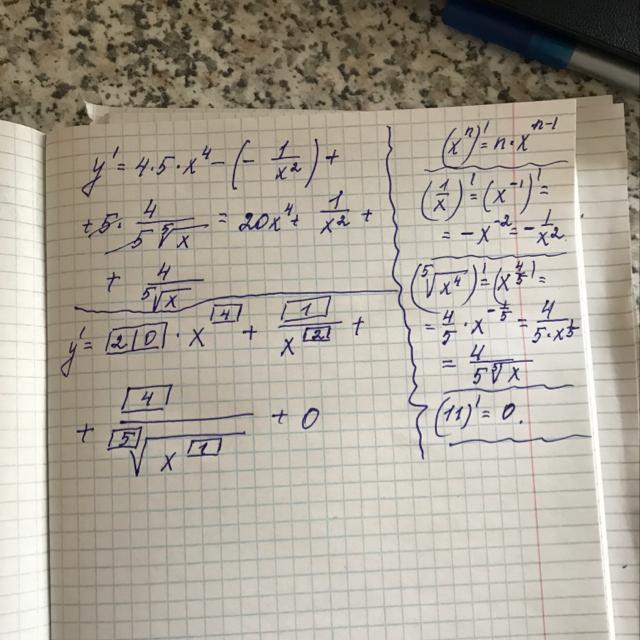 y' = 4·5·x⁴ − (− 1/x²) +
+ 5· 4/(5 ⁵√x) = 20x⁴ + 1/x² +
+ 4/⁵√x
y' = [2][0] · x^[4] + [1]/x^[2] +
+ [4]/([5]√(x^[1])) + 0
(xⁿ)' = n·xⁿ⁻¹
(1/x)' = (x⁻¹)' =
= −x⁻² = −1/x².
(⁵√x⁴)' = (x^(4/5))' =
= 4/5 · x^(−1/5) = 4/(5·x^(1/5))
= 4/(5 ⁵√x)
(11)' = 0.